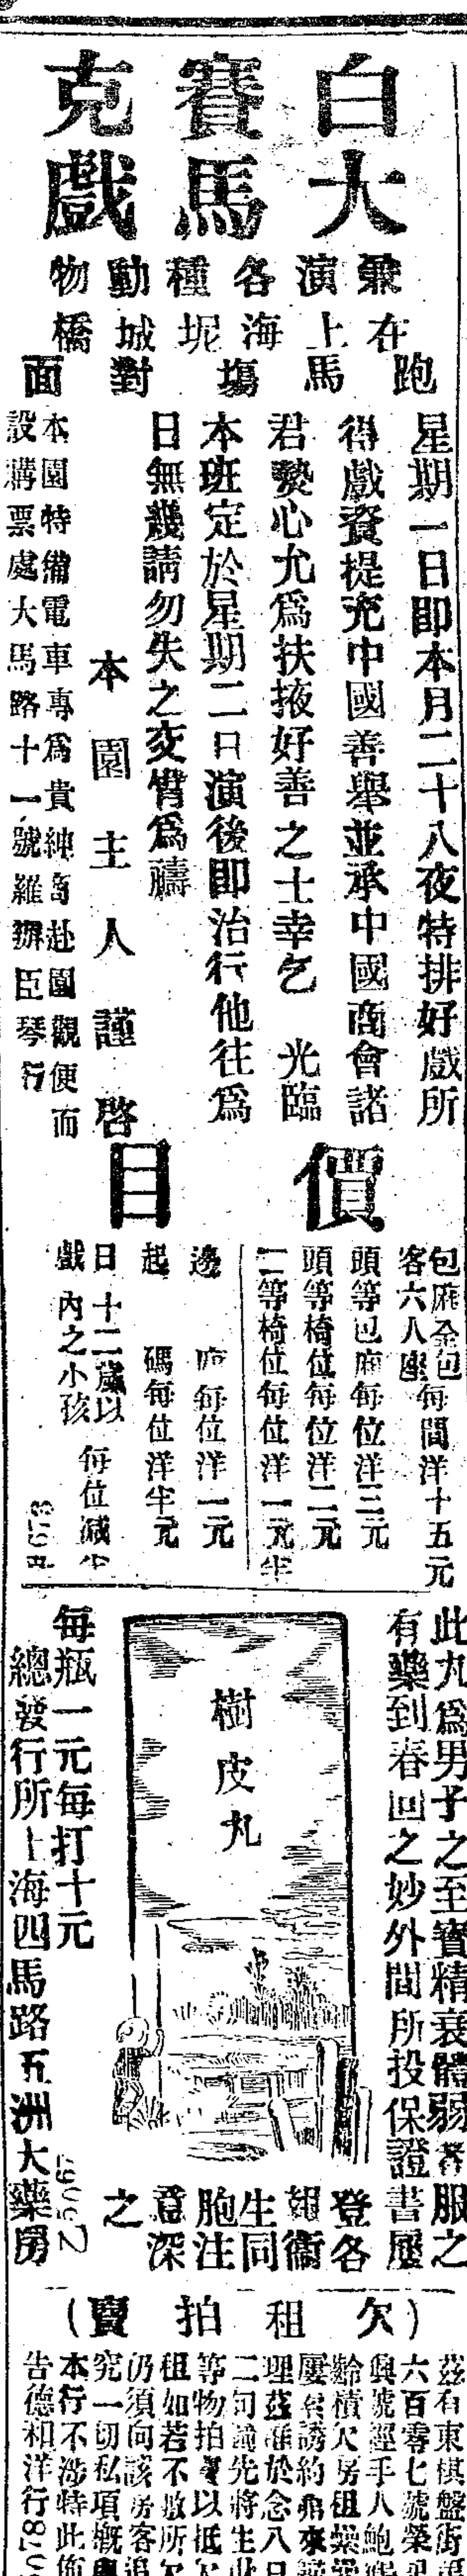 白大賽馬克戲
兼演各種動物
在上海坭城橋
跑馬塲對面
星期一日即本月二十八夜特排好戲所
得戲資提充中國善舉並承中國商會諸
君熱心允爲扶掖好善之士幸乞　光臨
本班定於星期二日演後即治行他往爲
日無幾請勿失之交臂爲禱
本園主人謹啓
本園特備電車專爲貴紳商赴園觀便而
設購票處大馬路十一號羅辦臣琴行
價目
包廂全包每間洋十五元
客六人座
頭等包廂每位洋三元
頭等椅位每位洋二元
二等椅位每位洋一元半
邊廂每位洋一元
起碼每位洋半元
日戲十二歲以
內之小孩每位減半
此丸爲男子之至寶精衰體弱者服之
有藥到春回之妙外間所投保證書屢
登各
報衛
生同
胞注
意深
之
樹皮丸
每瓶一元每打十元
總發行所上海四馬路五洲大藥房
（欠租拍賣）
茲有東棋盤街
六百零七號榮
興號經手人鮑
齡積欠房租
屢
理茲准於念八日
二句鐘先將生
等物拍賣以抵欠
租如若不敷所欠
仍須向該房客追
究一切私項概與
本行不涉特此佈
告德和洋行